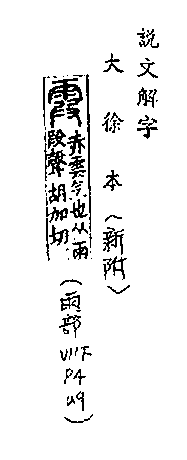 說文解字
大徐本(新附)
霞 赤雲气也从雨
叚聲胡加切
(雨部
VII下
P4
u9)